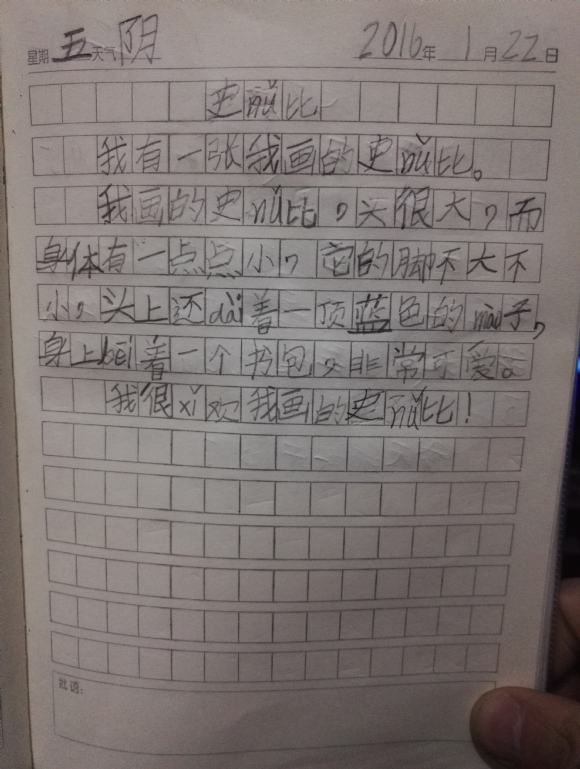 星期 五 天气 阴 2016年 1月22日
史nǚ比
我有一张我画的史nǚ比。
我画的史nǚ比，头很大，而
身体有一点点小，它的脚不大不
小，头上还dài着一顶蓝色的mào子，
身上bēi着一个书包，非常可爱。
我很xǐ欢我画的史nǚ比！
批语：